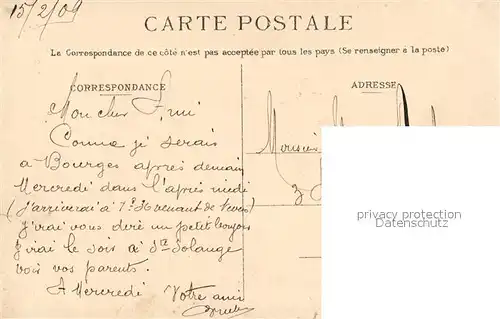 15/2/09
CARTE POSTALE
La Correspondance de ce côté n'est pas acceptée par tous les pays (Se renseigner à la poste)
CORRESPONDANCE
ADRESSE
Mon cher
Comme je serais
a Bourges après demain
Mercredi dans l'après midi
(j'arriverai à 1h36 venant de Nevers)
j'irai vous dire un petit bonjour
J'irai le soir à Ste Solange
voir vos parents.
A Mercredi Votre ami
Monsieur
privacy protection
Datenschutz